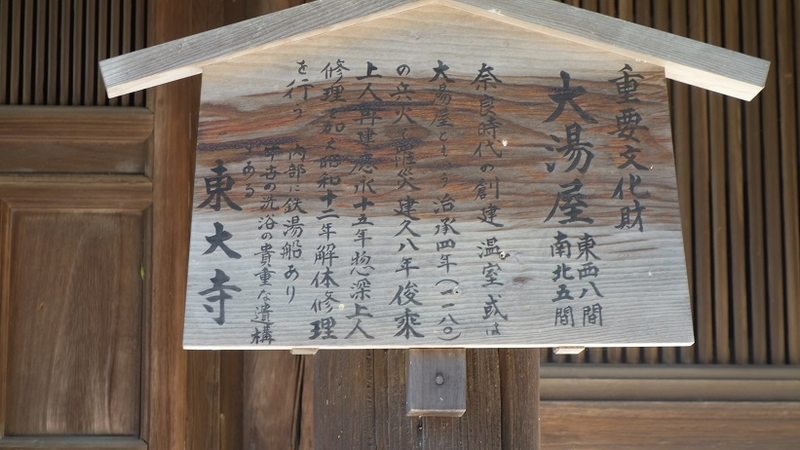 重要文化財
大湯屋 東西八間
南北五間
奈良時代の創建 温室 或は
大湯屋ともう 治承四年(一一八〇)
の兵火に罹災 建久八年俊乘
上人再建 應永十五年惣深上人
修理を加え 昭和十二年解体修理
を行う 内部に鉄湯船あり
中古の洗浴の貴重な遺構
である
東大寺